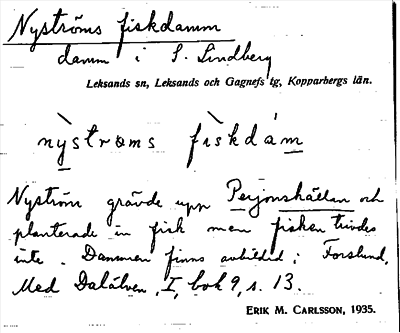 Nyströms fiskdamm
damm i S. Lindberg
Leksands sn, Leksands och Gagnefs tg, Kopparbergs län.
nystrøms fìskdám
Nyström grävde upp Perjonskällan och
planterade in fisk men fisken trivdes
inte. Dammen finns avbildad i Forslund,
Med Dalälven, I, bok 9, s. 13.
ERIK M. CARLSSON, 1935.